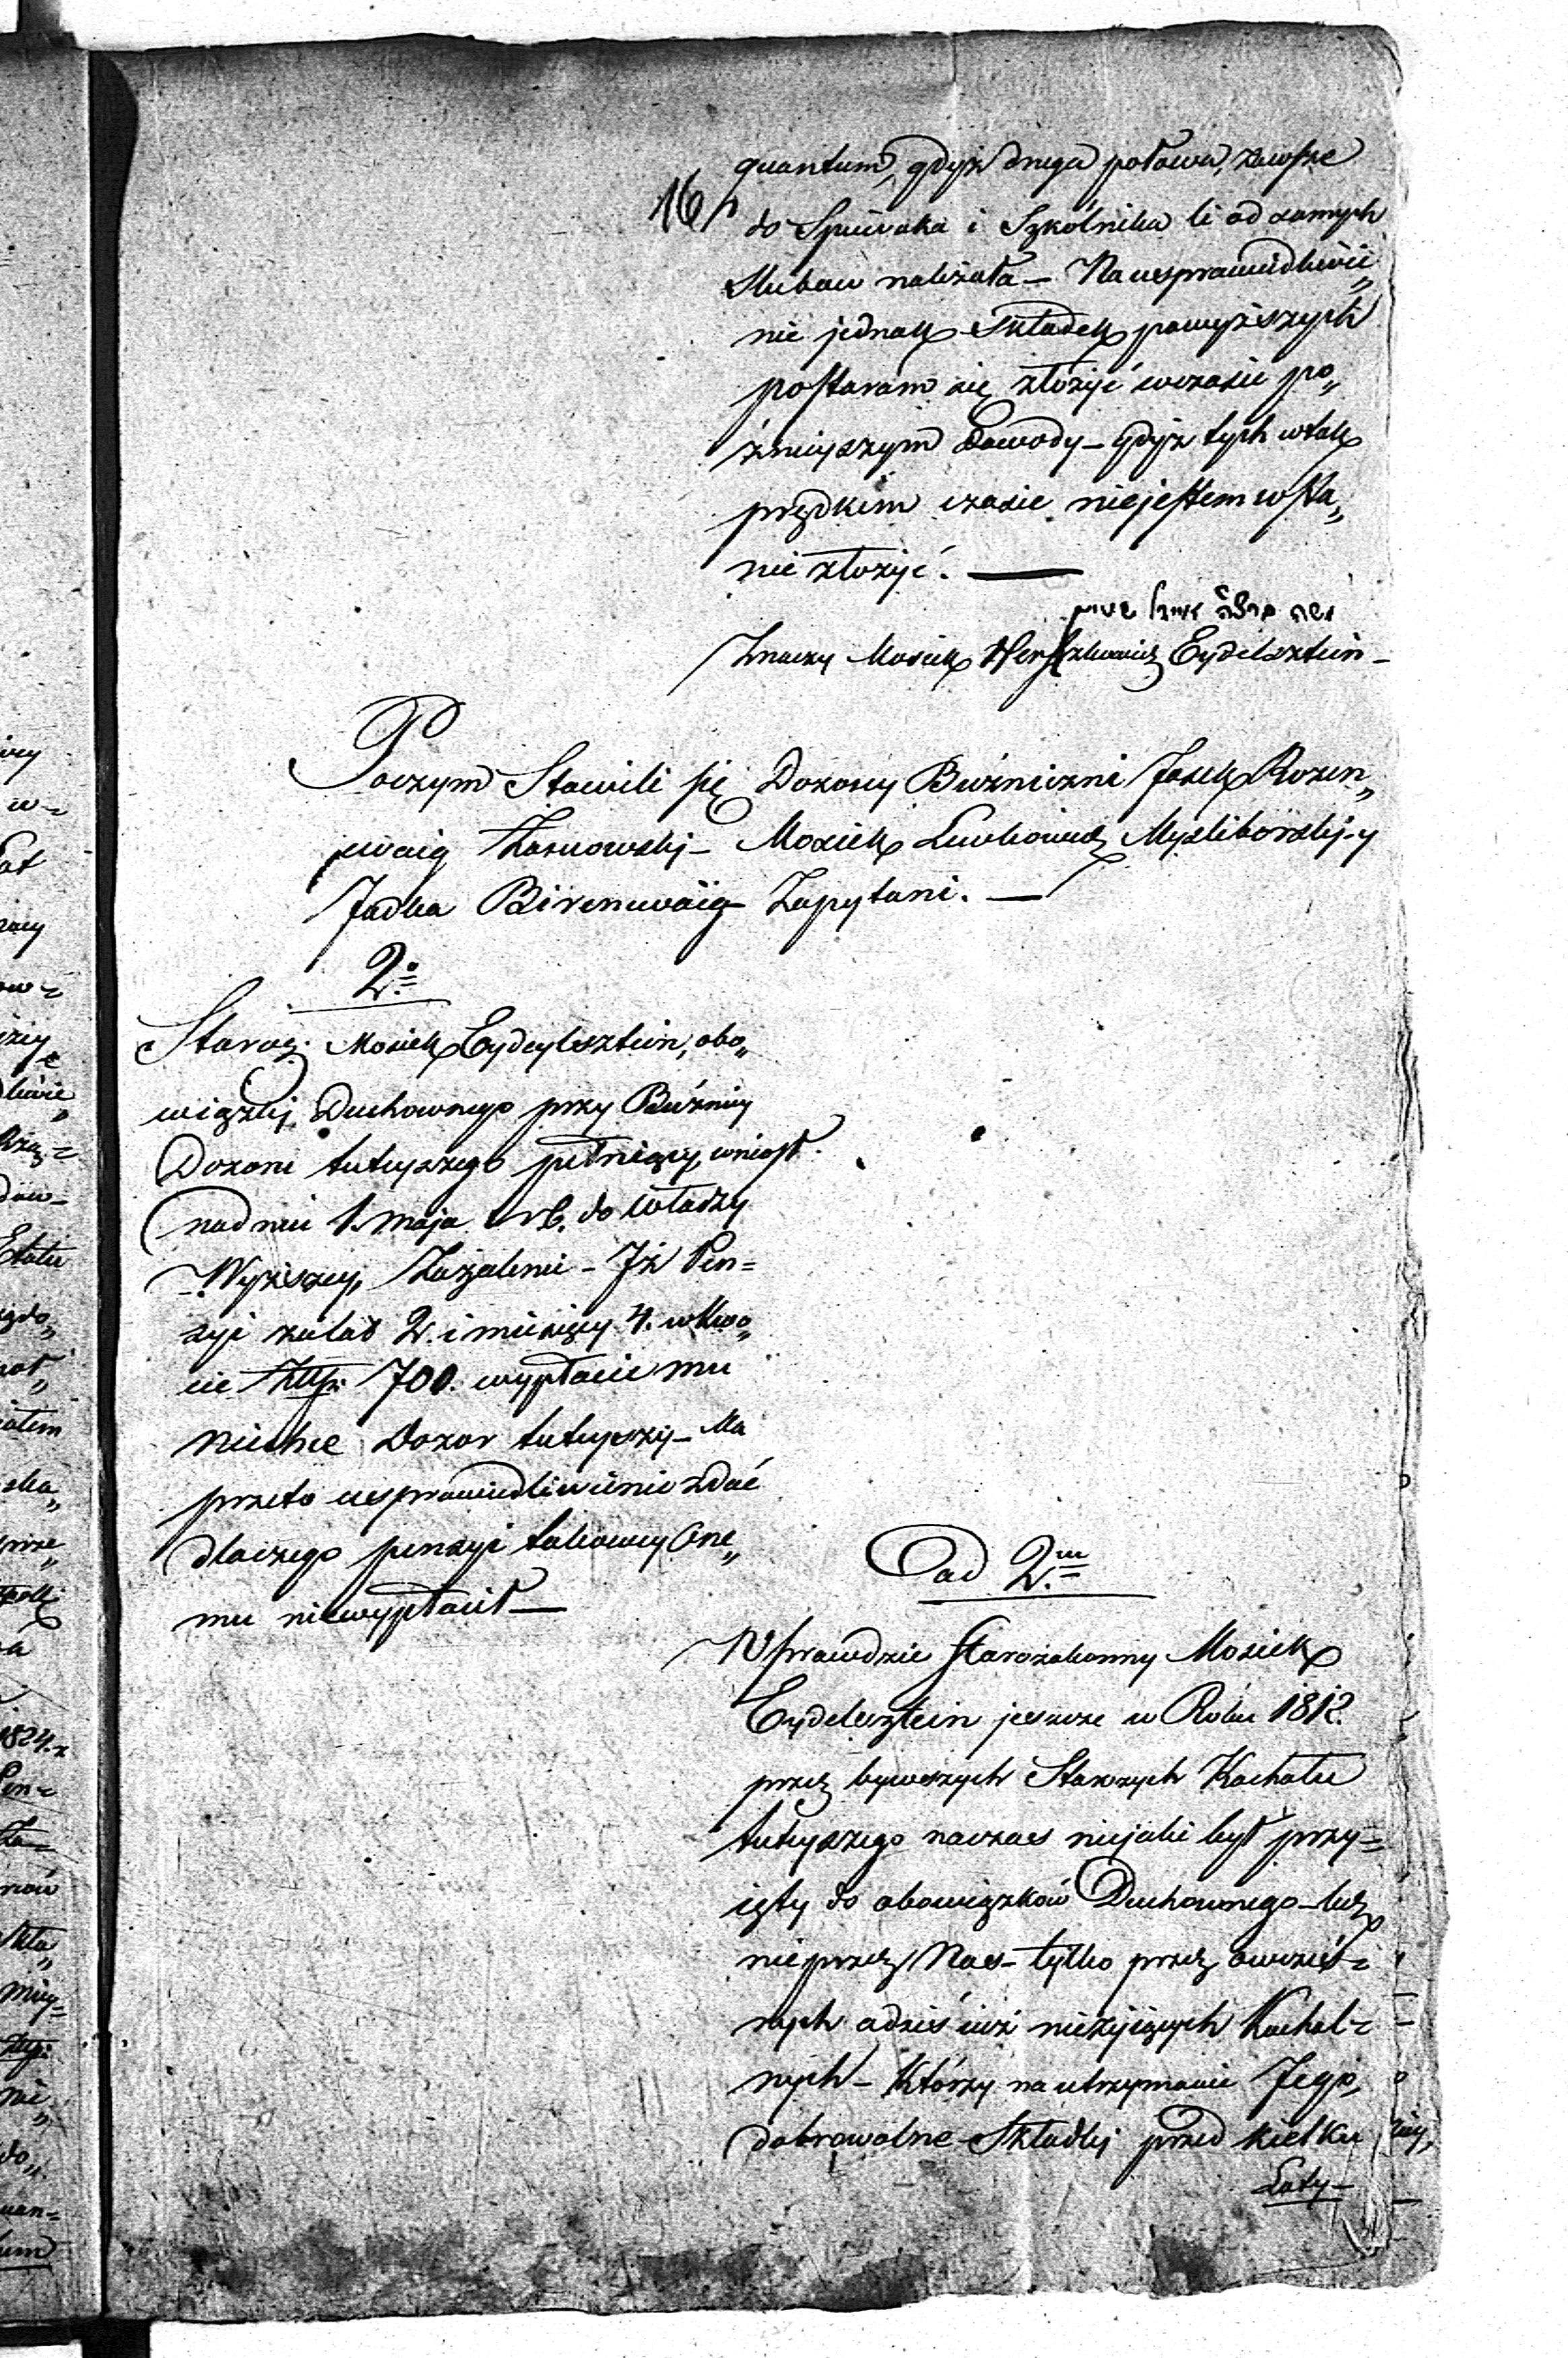 quantum, gdyż druga połowa, zawsze
16
do Spiewaka i Szkolnika li od samych
Slubow należała – Na usprawiedliwie„
nie jednak Składek powyższych
postaram się złożyć wczasie po„
źnieyszym Dowody – gdyż tych wtak
prędkim czasie niejestem wsta„
nie złożyć. —
משה
Znaczy Mosiek Herszkowicz Eydelsztein –
Poczym Stawili się Dozorcy Bużniczni Josek Rozen„
zwaig – Mosiek Lewkowicz Myslibórski – y
Judka Birencwaig Zapytani. —
2.
Staroz: Mosiek Eydeylsztein, obo„
wiązki Duchownego przy Bużnicy
Dozoru tuteyszego pełniący, wniosł
nadniu 1. maja r b. do Władzy
Wyższey, Zażalenie – Iż Pen=
syi zalat 2. i miesięcy 4. wKwo„
cie Złtp: 700. wypłacić mu
niechce Dozor tuteyszy – Ma
przeto usprawiedliwienie zdać
dlaczego pensyi takowey One„
mu niewypłacił —
ad 2.
Wprawdzie Starozakonny Mosiek
Eydelsztein jeszcze w Roku 1812.
przez bywszych Starszych Kachału
tuteyszego naczas niejaki był przy=
ięty do obowiązków Duchownego – lecz
nieprzez Nas – tylko przez owcześ=
nych adziś iuż nieżyiących Kachal=
nych – Którzy na utrzymanie Jego,
dobrowolne Składki przed kielku
Laty –